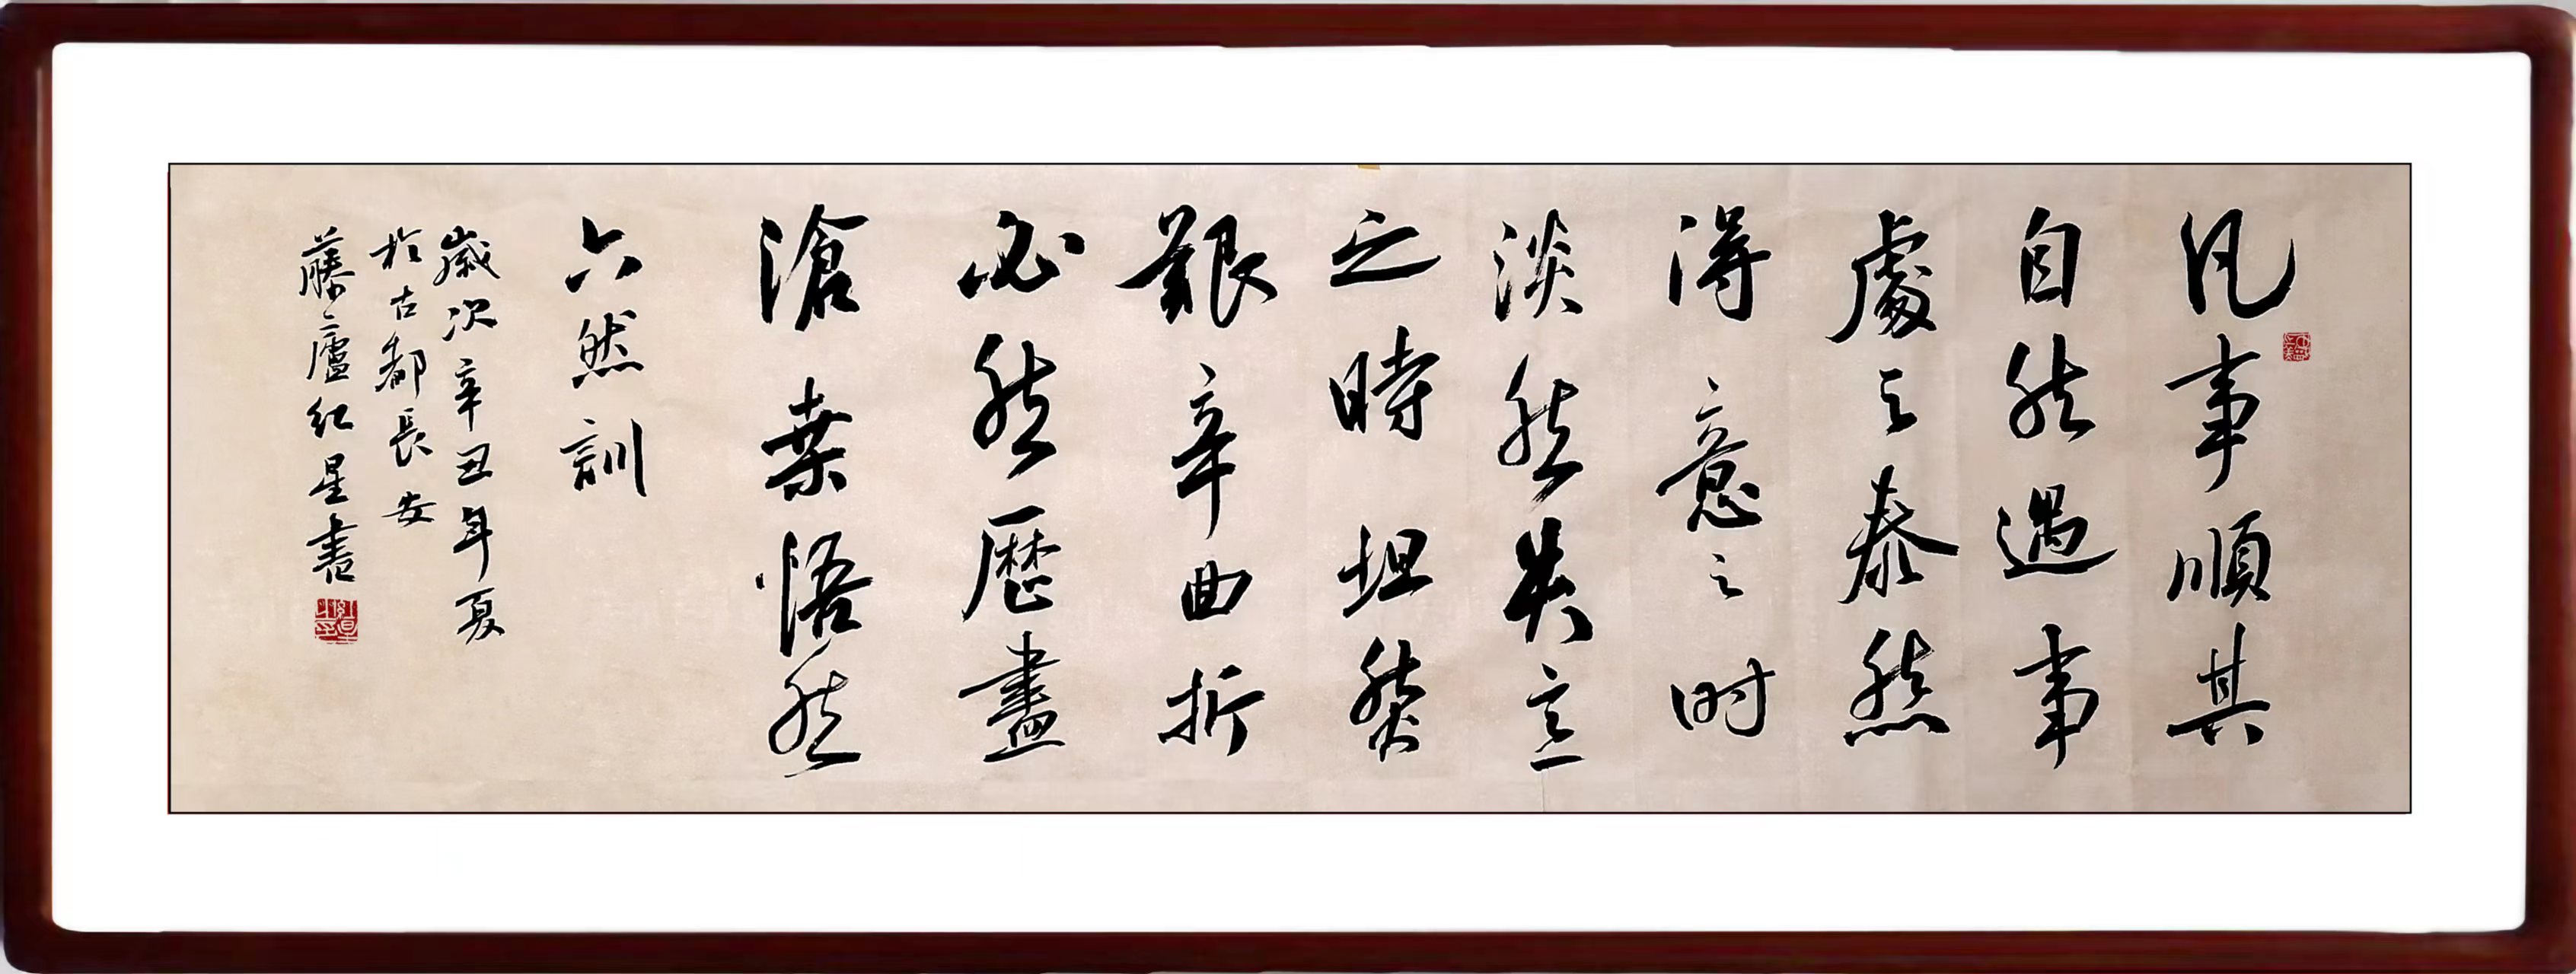 凡事順其
自然遇事
處之泰然
得意之时
淡然失意
之時坦然
艱辛曲折
必然歷盡
滄桑悟然
六然訓
歲次辛丑年夏
於古都長安
藤廬紅星書